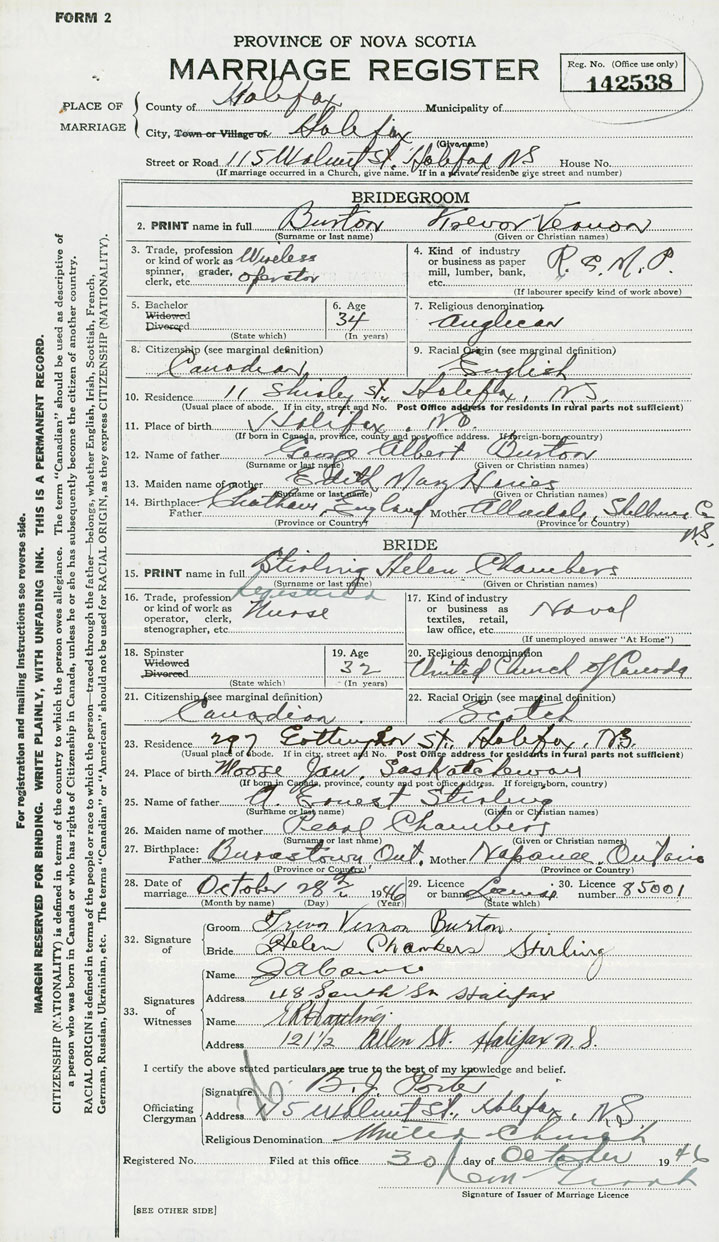 FORM 2
PROVINCE OF NOVA SCOTIA
MARRIAGE REGISTER
Reg. No. (Office use only)
142538
PLACE OF MARRIAGE
County of Halifax Municipality of
City, Town or Village of Halifax
(Give name)
Street or Road 115 Walnut St. Halifax NS House No.
(If marriage occurred in a Church, give name. If in a private residence give street and number)
BRIDEGROOM
2. PRINT name in full Burton Trevor Vernon
(Surname or last name) (Given or Christian names)
3. Trade, profession or kind of work as spinner, grader, clerk, etc. Wireless operator
4. Kind of industry or business as paper mill, lumber, bank, etc. R.C.M.P.
(If labourer specify kind of work above)
5. Bachelor Widowed Divorced
(State which)
6. Age 34
(In years)
7. Religious denomination Anglican
8. Citizenship (see marginal definition) Canadian
9. Racial Origin (see marginal definition) English
10. Residence 11 Shirley St., Halifax, N.S.
(Usual place of abode. If in city, street and No. Post Office address for residents in rural parts not sufficient)
11. Place of birth Halifax, N.S.
(If born in Canada, province, county and post office address. If foreign-born, country)
12. Name of father George Albert Burton
(Surname or last name) (Given or Christian names)
13. Maiden name of mother Edith May
(Surname or last name) (Given or Christian names)
14. Birthplace: Father Chatham, England Mother Shelburne Co. N.S.
(Province or Country) (Province or Country)
BRIDE
15. PRINT name in full Stirling Helen Chambers
(Surname or last name) (Given or Christian names)
16. Trade, profession or kind of work as operator, clerk, stenographer, etc. registered Nurse
17. Kind of industry or business as textiles, retail, law office, etc. Naval
(If unemployed answer "At Home")
18. Spinster Widowed Divorced
(State which)
19. Age 32
(In years)
20. Religious denomination United Church of Canada
21. Citizenship (see marginal definition) Canadian
22. Racial Origin (see marginal definition) Scotch
23. Residence 297 St. Halifax, N.S.
(Usual place of abode. If in city, street and No. Post Office address for residents in rural parts not sufficient)
24. Place of birth Moose Jaw, Saskatchewan
(If born in Canada, province, county and post office address. If foreign-born, country)
25. Name of father A. Ernest Stirling
(Surname or last name) (Given or Christian names)
26. Maiden name of mother Pearl Chambers
(Surname or last name) (Given or Christian names)
27. Birthplace: Father Ont. Mother Napanee, Ontario
(Province or Country) (Province or Country)
28. Date of marriage October 28 1946
(Month by name) (Day) (Year)
29. License or banns License
(State which)
30. Licence number 85001
32. Signature of
Groom Trevor Vernon Burton.
Bride Helen Chambers Stirling
33. Signatures of Witnesses
Name
Address 48 South St Halifax
Name
Address 121 1/2 Allen St. Halifax N.S.
I certify the above stated particulars are true to the best of my knowledge and belief.
Officiating Clergyman
Signature B. J. Porter
Address 115 Walnut St., Halifax, N.S.
Religious Denomination United Church
Registered No. Filed at this office 30 day of October 1946
Signature of Issuer of Marriage Licence
[SEE OTHER SIDE]
For registration and mailing instructions see reverse side.
MARGIN RESERVED FOR BINDING. WRITE PLAINLY, WITH UNFADING INK. THIS IS A PERMANENT RECORD.
CITIZENSHIP (NATIONALITY) is defined in terms of the country to which the person owes allegiance. The term "Canadian" should be used as descriptive of
a person who was born in Canada or who has rights of Citizenship in Canada, unless he or she has subsequently become the citizen of another country.
RACIAL ORIGIN is defined in terms of the people or race to which the person—traced through the father—belongs, whether English, Irish, Scottish, French,
German, Russian, Ukrainian, etc. The terms "Canadian" or "American" should not be used for RACIAL ORIGIN, as they express CITIZENSHIP (NATIONALITY).